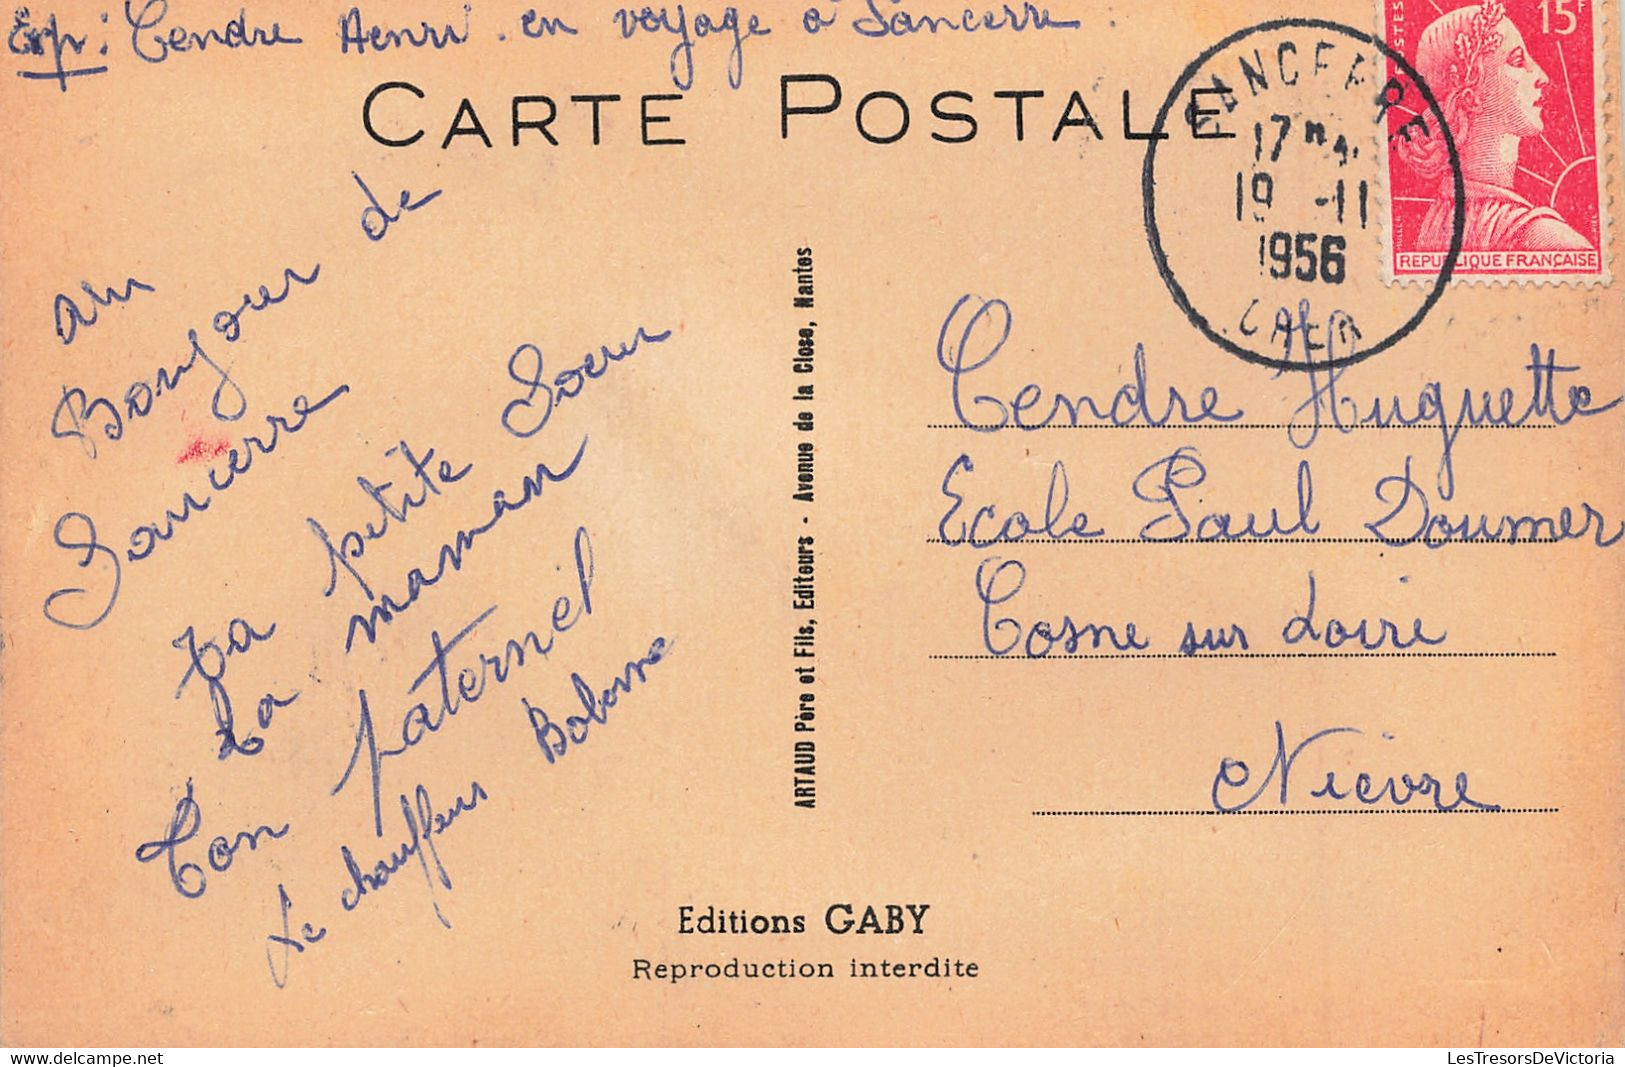 Exp: Cendre Henri. en voyage à Sancerre.
CARTE POSTALE
POSTES
15F
SANCERRE
17 H
19 -11
1956
CHER
REPUBLIQUE FRANÇAISE
MULLER
un
Bonjour de
Sancerre
ta petite Soeur
La maman
Ton paternel
Le chauffeur
ARTAUD Père et Fils, Editeurs - Avenue de la Close, Nantes
Cendre Huguette
Ecole Paul Doumer
Cosne sur Loire
Nievre
Editions GABY
Reproduction interdite
LesTresorsDeVictoria